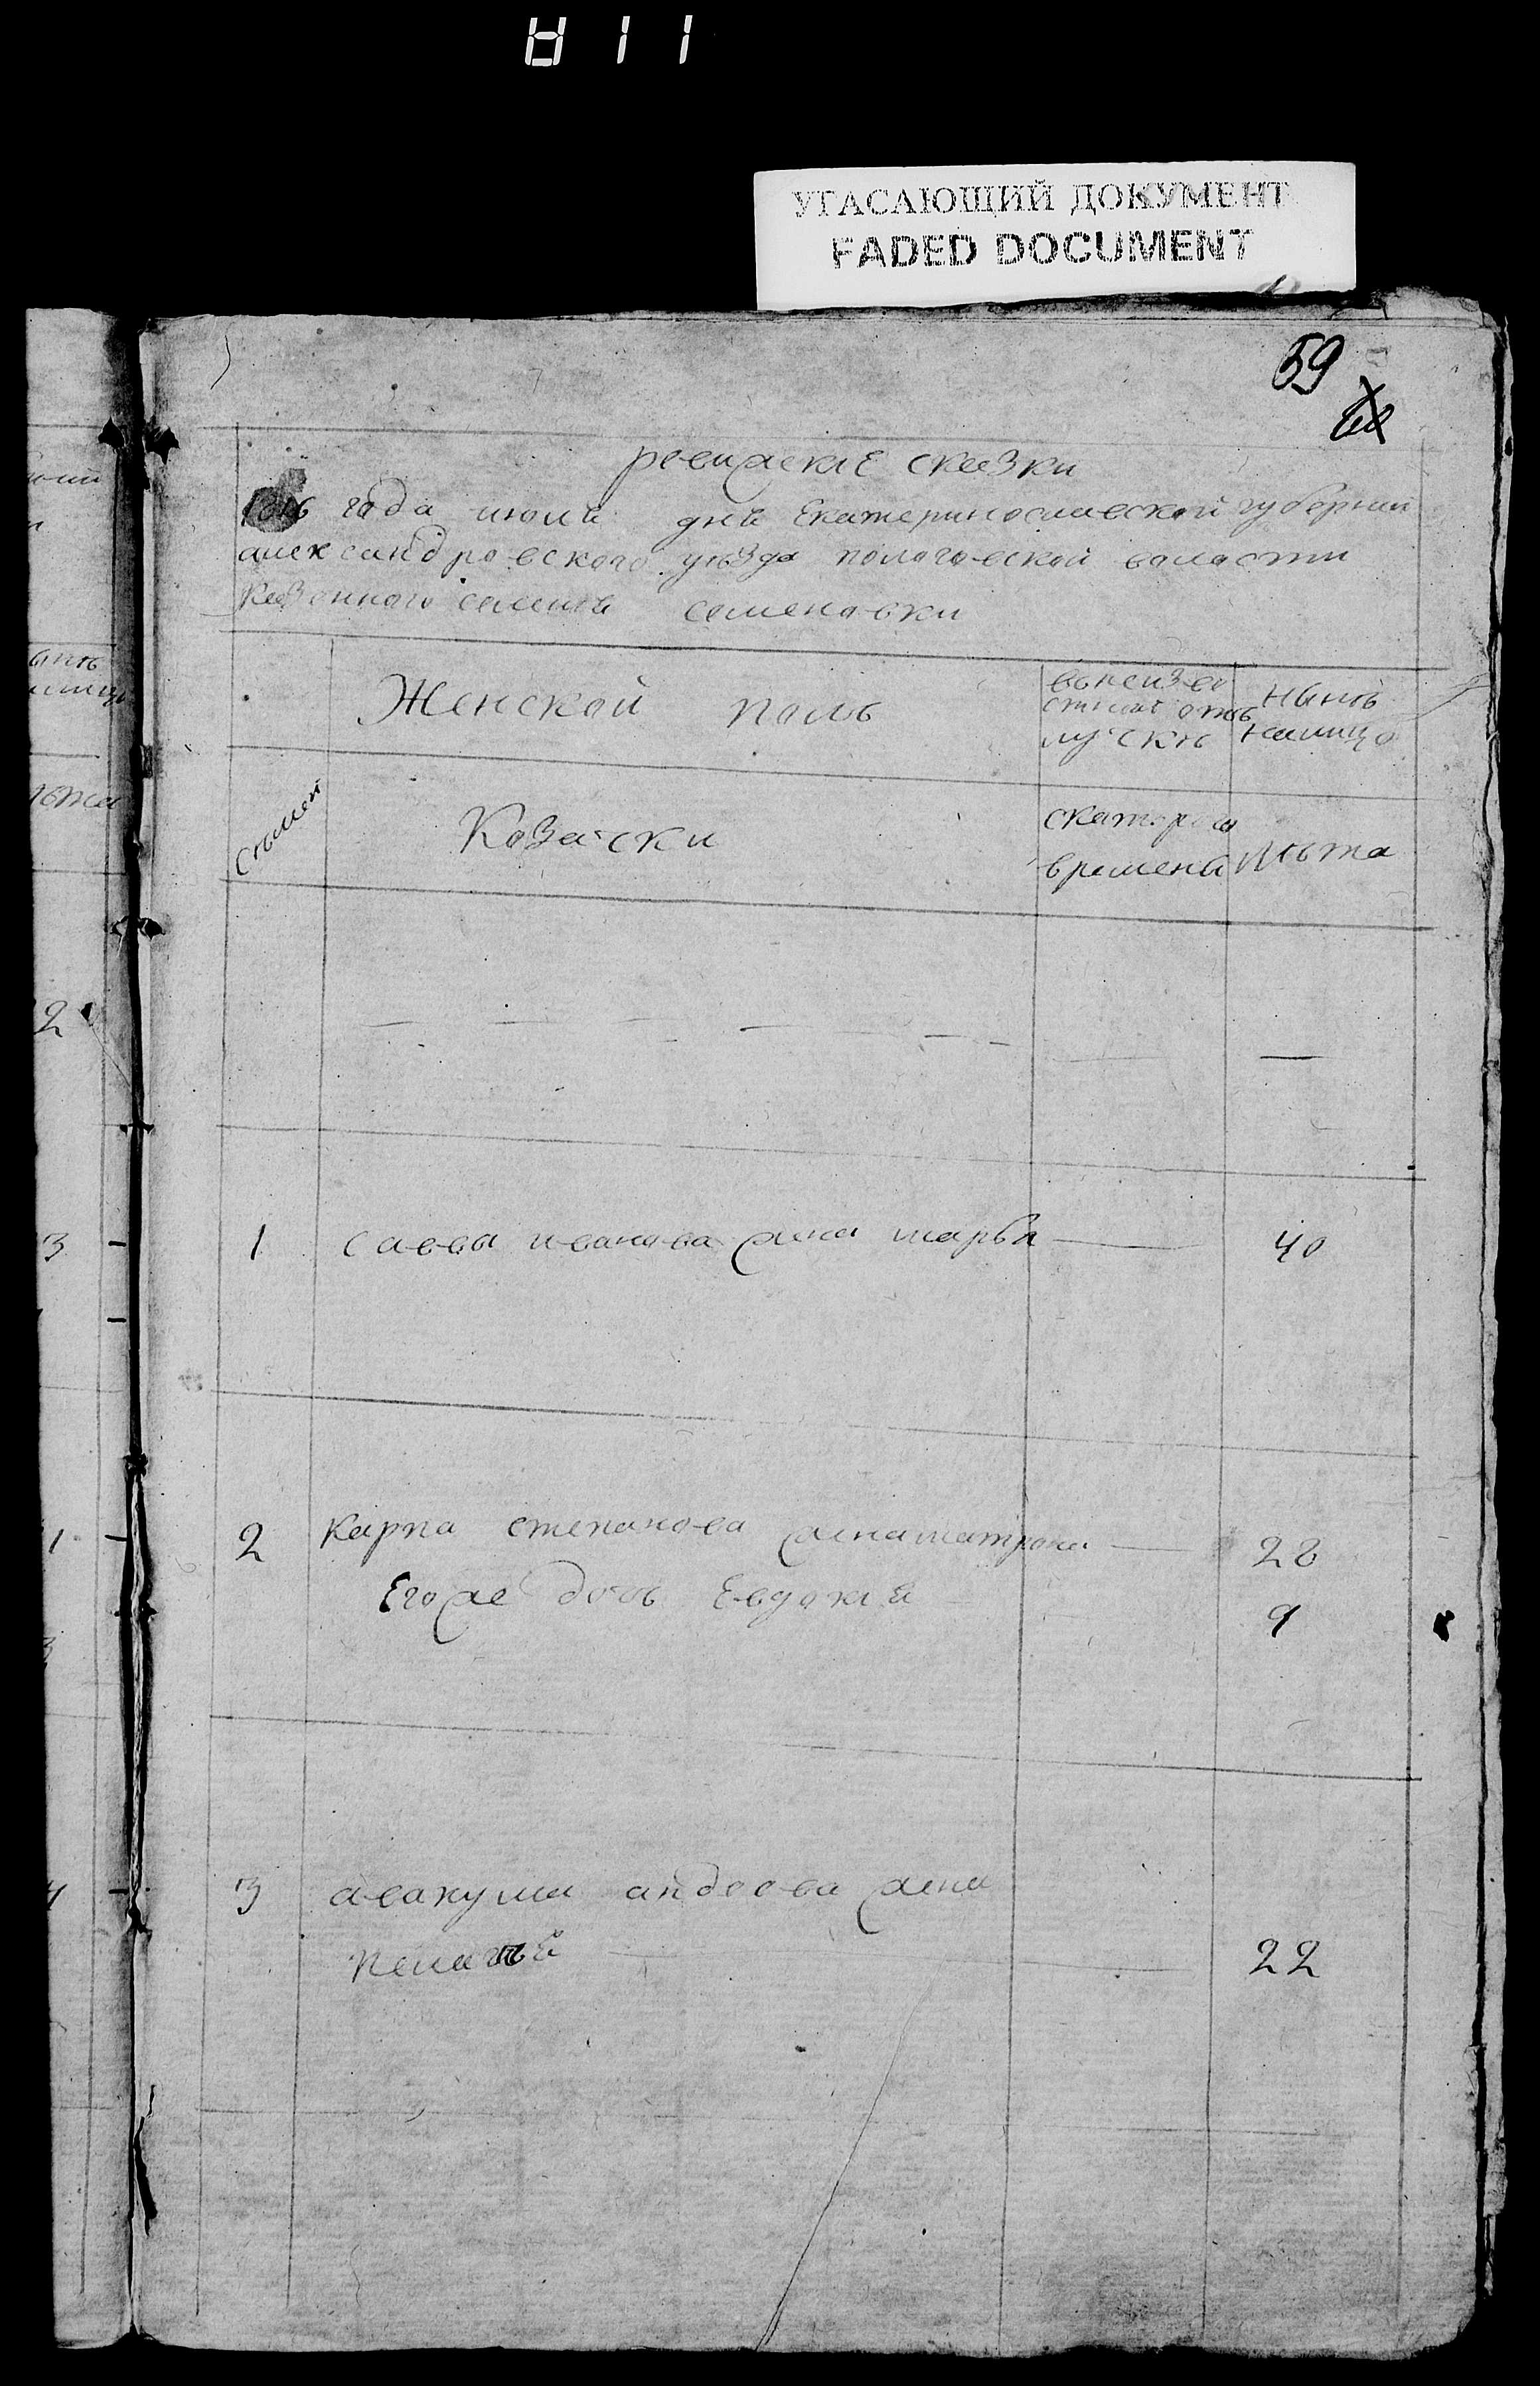 811
УГАСАЮЩИЙ ДОКУМЕНТ
FADED DOCUMENT
59
ревижские сказки
1816 года июля дня Екатеринославской губернии
александровского уѣзда пологовской воласти
казенного селения семеновки
Женской полъ
вонеизве
стной отъ
лучкѣ
Нынѣ
налицо
Сѣмеи
Козачки
скаторои
времены
Лѣта
1 саввы иванова жена марѳа 40
2 Карпа степанова жена матрона 28
Его же дочь Евдокия 9
3 авакума андеева жена
пелагея 22